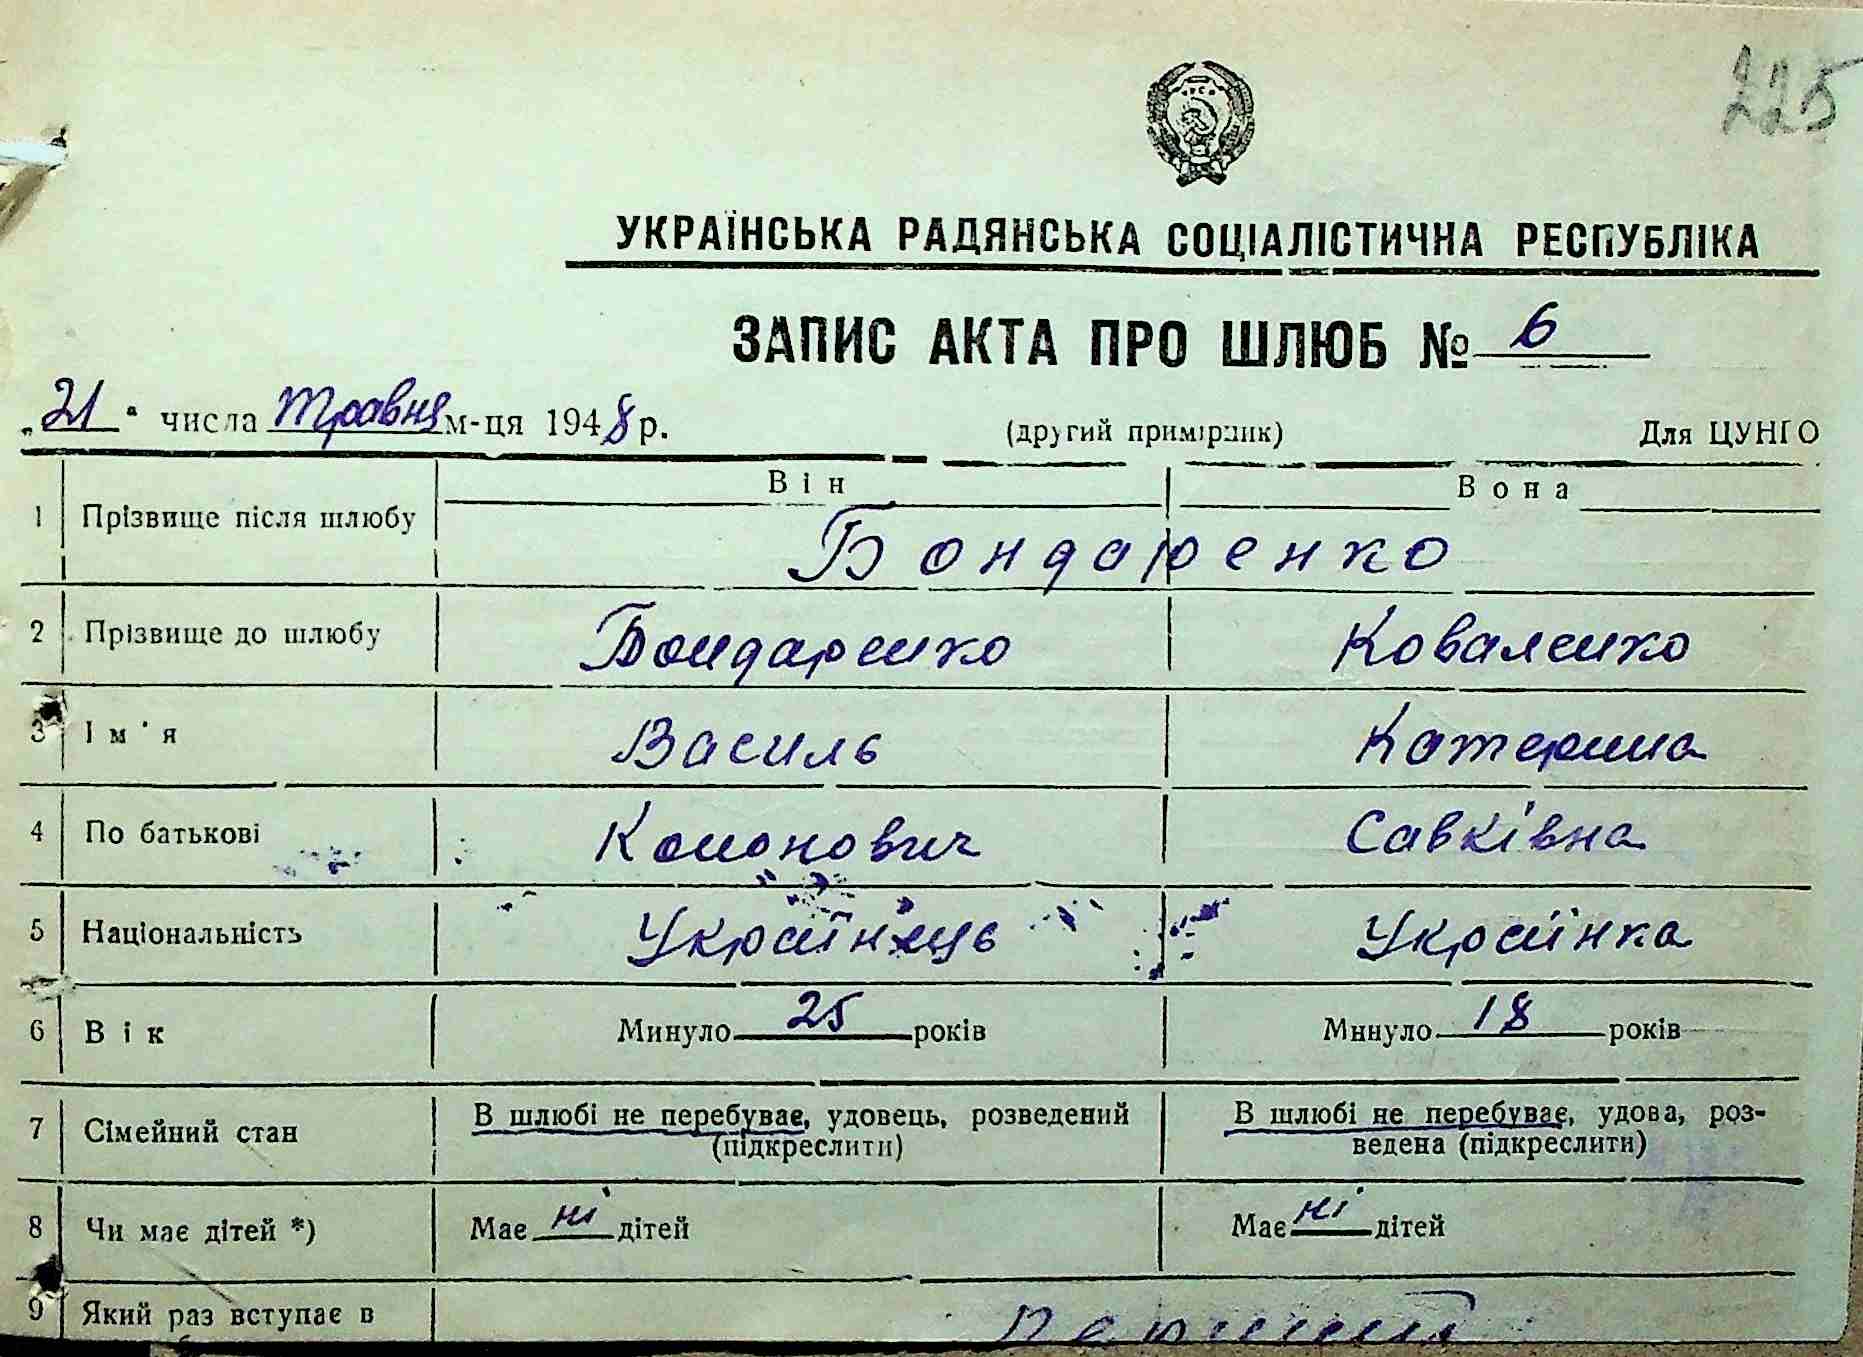 225
УКРАЇНСЬКА РАДЯНСЬКА СОЦІАЛІСТИЧНА РЕСПУБЛІКА
ЗАПИС АКТА ПРО ШЛЮБ № 6
„21“ числа травня м-ця 1948 р. (другий примірник) Для ЦУНГО
Він Вона
1 Прізвище після шлюбу Бондаренко
2 Прізвище до шлюбу Бондаренко Коваленко
3 Ім'я Василь Катерина
4 По батькові Кононович Савківна
5 Національність Українець Українка
6 Вік Минуло 25 років Минуло 18 років
7 Сімейний стан В шлюбі не перебуває, удовець, розведений (підкреслити) В шлюбі не перебуває, удова, роз-
ведена (підкреслити)
8 Чи має дітей *) Має ні дітей Має ні дітей
9 Який раз вступає в перший